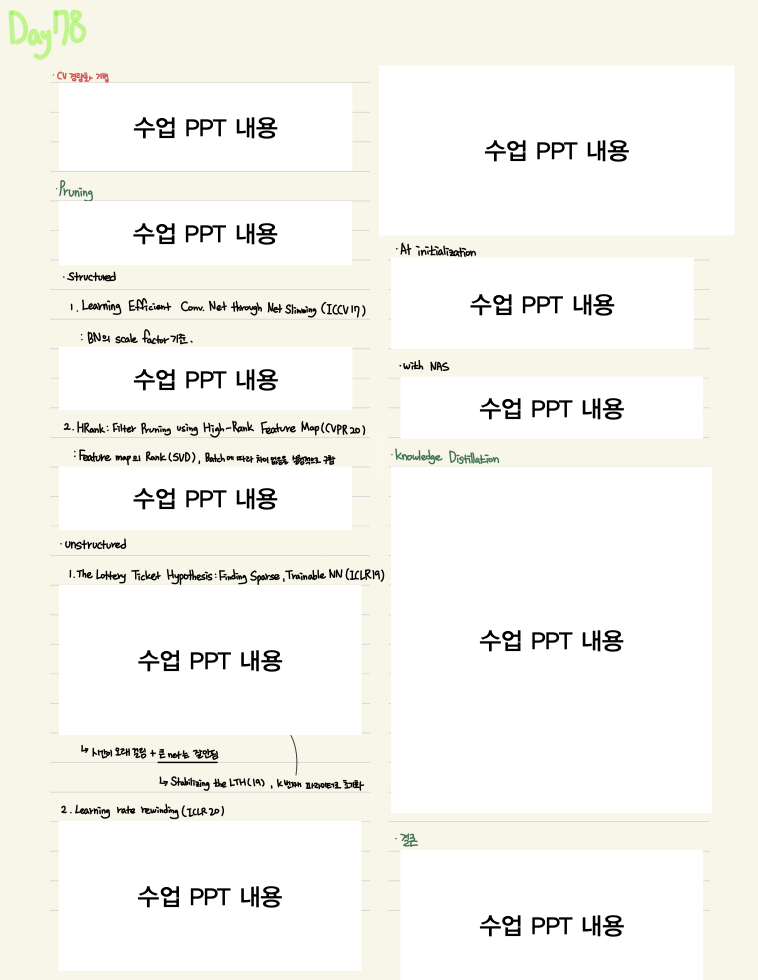 Day78
· CV 경량화 기법
수업 PPT 내용
· Pruning
수업 PPT 내용
· Structured
1. Learning Efficient Conv. Net through Net Slimming (ICCV 17)
: BN의 scale factor 기준.
수업 PPT 내용
2. HRank: Filter Pruning using High-Rank Feature Map (CVPR 20)
: Feature map의 Rank (SVD), Batch에 따라 차이 없음을 실험적으로 구함
수업 PPT 내용
· unstructured
1. The Lottery Ticket Hypothesis: Finding Sparse, Trainable NN (ICLR19)
수업 PPT 내용
↳ 시간이 오래 걸림 + 큰 net는 잘안됨
↳ Stabilizing the LTH(19), k번째 파라미터로 초기화
2. Learning rate rewinding (ICLR 20)
수업 PPT 내용
수업 PPT 내용
· At initialization
수업 PPT 내용
· with NAS
수업 PPT 내용
· Knowledge Distillation
수업 PPT 내용
· 결론
수업 PPT 내용